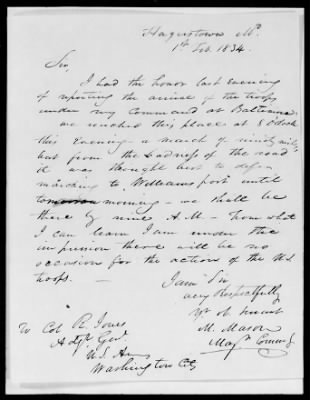 Hagerstown Md.
1st Feb. 1834.
Sir,
I had the honor last evening
of reporting the arrival of the troops
under my command at Baltimore
we reached this place at 8 O'clock
this Evening a march of ninety miles
but from the badness of the road
it was thought best to defer
marching to Williamsport until
tomorrow morning - we shall be
there by nine A.M - from what
I can learn I am under the
impression there will be no
occasion for the action of the U.S
troops. -
I am Sir
very Respectfully
Yr. ob. Servant
M. Mason
Maj. Commg
To Col R. Jones
Adjt. Genl.
U.S. Army
Washington City